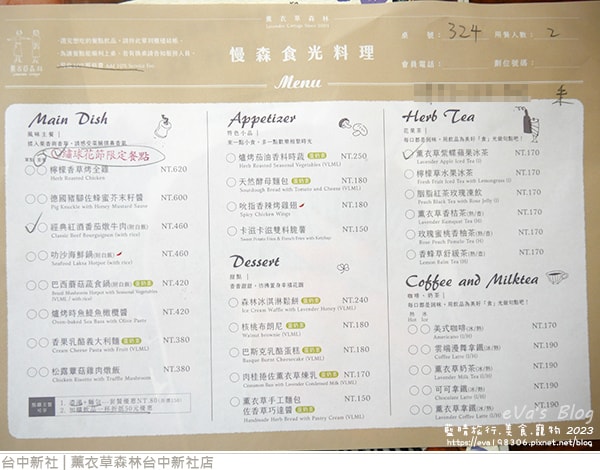 薰衣草森林
Lavender Cottage Since 2001
慢森食光料理
Menu
桌 號： 324
用餐人數： 2
會員電話：
劃位號碼：
Main Dish
風味主餐
繡球花節限定餐點
檸檬香草烤全雞 NT.620
Herb Roasted Chicken
德國豬腳佐蜂蜜芥末籽醬 NT.630
Pig Knuckle with Honey Mustard Sauce
經典紅酒番茄燉牛肉(附白飯) NT.460
Classic Beef Bourguignon (with rice)
叻沙海鮮鍋(附白飯) NT.460
Seafood Laksa Hotpot (with rice)
巴西蘑菇蔬食鍋(附白飯) NT.440
爐烤時魚鯷魚橄欖醬 NT.420
Oven-baked Sea Bass with Olive Paste
香菓乳酪義大利麵 NT.380
Cream Cheese Pasta with Fruit (VLML)
松露蕈菇雞肉燉飯 NT.380
Chicken Risotto with Truffle Mushroom
Appetizer
特色小品
爐烤茄油香料時蔬 NT.250
Herb Roasted Seasonal Vegetables (VLML)
天然酵母麵包 NT.180
Sourdough Bread with Tomato and Cheese (VLML)
吮指香辣烤雞翅 NT.180
Spicy Chicken Wings
卡滋卡滋雙料脆薯 NT.150
Dessert
甜點
森林冰淇淋鬆餅 NT.240
Ice Cream Waffle with Lavender Honey (VLML)
核桃布朗尼 NT.180
Walnut Brownie (VLML)
巴斯克乳酪蛋糕 NT.180
Basque Burnt Cheesecake (VLML)
肉桂捲佐薰衣草煉乳 NT.150
Cinnamon Bun with Lavender Condensed Milk (VLML)
薰衣草手工麵包
佐香草巧達醬 NT.150
Herb Tea
花草茶
薰衣草紫蝶蘋果冰茶 NT.170
Lavender Apple Iced Tea (I)
檸檬草水果冰茶 NT.170
Fresh Fruit Iced Tea with Lemongrass (I)
胭脂紅茶玫瑰凍飲 NT.170
Peach Black Tea with Rose Jelly (I)
薰衣草香桔茶(熱/壺) NT.170
玫瑰蜜桃香柚茶(熱/壺) NT.170
香蜂草舒緩茶(熱/壺) NT.170
Coffee and Milktea
咖啡、奶茶
美式咖啡(冰/熱) NT.170
Americano (I/H)
雲端漫舞拿鐵(冰/熱) NT.190
Coffee Latte (I/H)
薰衣草奶茶(冰/熱) NT.190
Lavender Milk Tea (I/H)
可可拿鐵(冰/熱) NT.190
Chocolate Latte (I/H)
薰衣草拿鐵(冰/熱) NT.190
eVa's Blog
藍晴旅行.美食.寵物 2023
https://eva198306.pixnet.net/blog
台中新社 | 薰衣草森林台中新社店